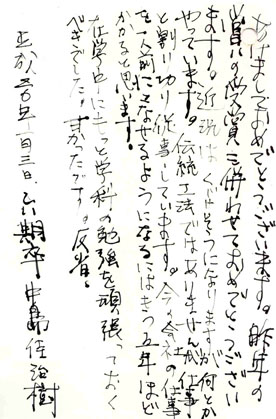 あけましておめでとうございます。昨年の
習心の受賞も併わせておめでとうござい
ます。近況はくじけそうになりますが何とか
やっています。伝統工法ではありませんが仕事
と割り切り従事しています。今の会社の仕事
を一人前にこなせるようになるにはきっと五年ほど
かかると思います。
在学中にもっと学科の勉強を頑張っておく
べきでした。甘かったです。反省。
正成 年一月三日 六期卒 中島佳 樹